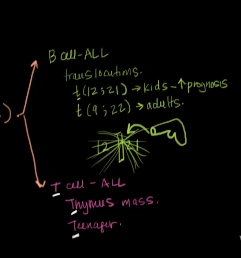 B cell-ALL
translocations.
t(12;21) → kids - ↑prognosis
t(9;22) → adults.
12 21
T cell - ALL
Thymus mass.
Teenager.